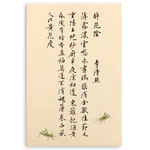 醉花陰
李清照
薄霧濃雲愁永晝瑞腦消金獸佳節又
重陽玉枕紗廚半夜涼初透東籬把酒黃
昏後有暗香盈袖莫道不消魂簾捲西風
人比黃花瘦